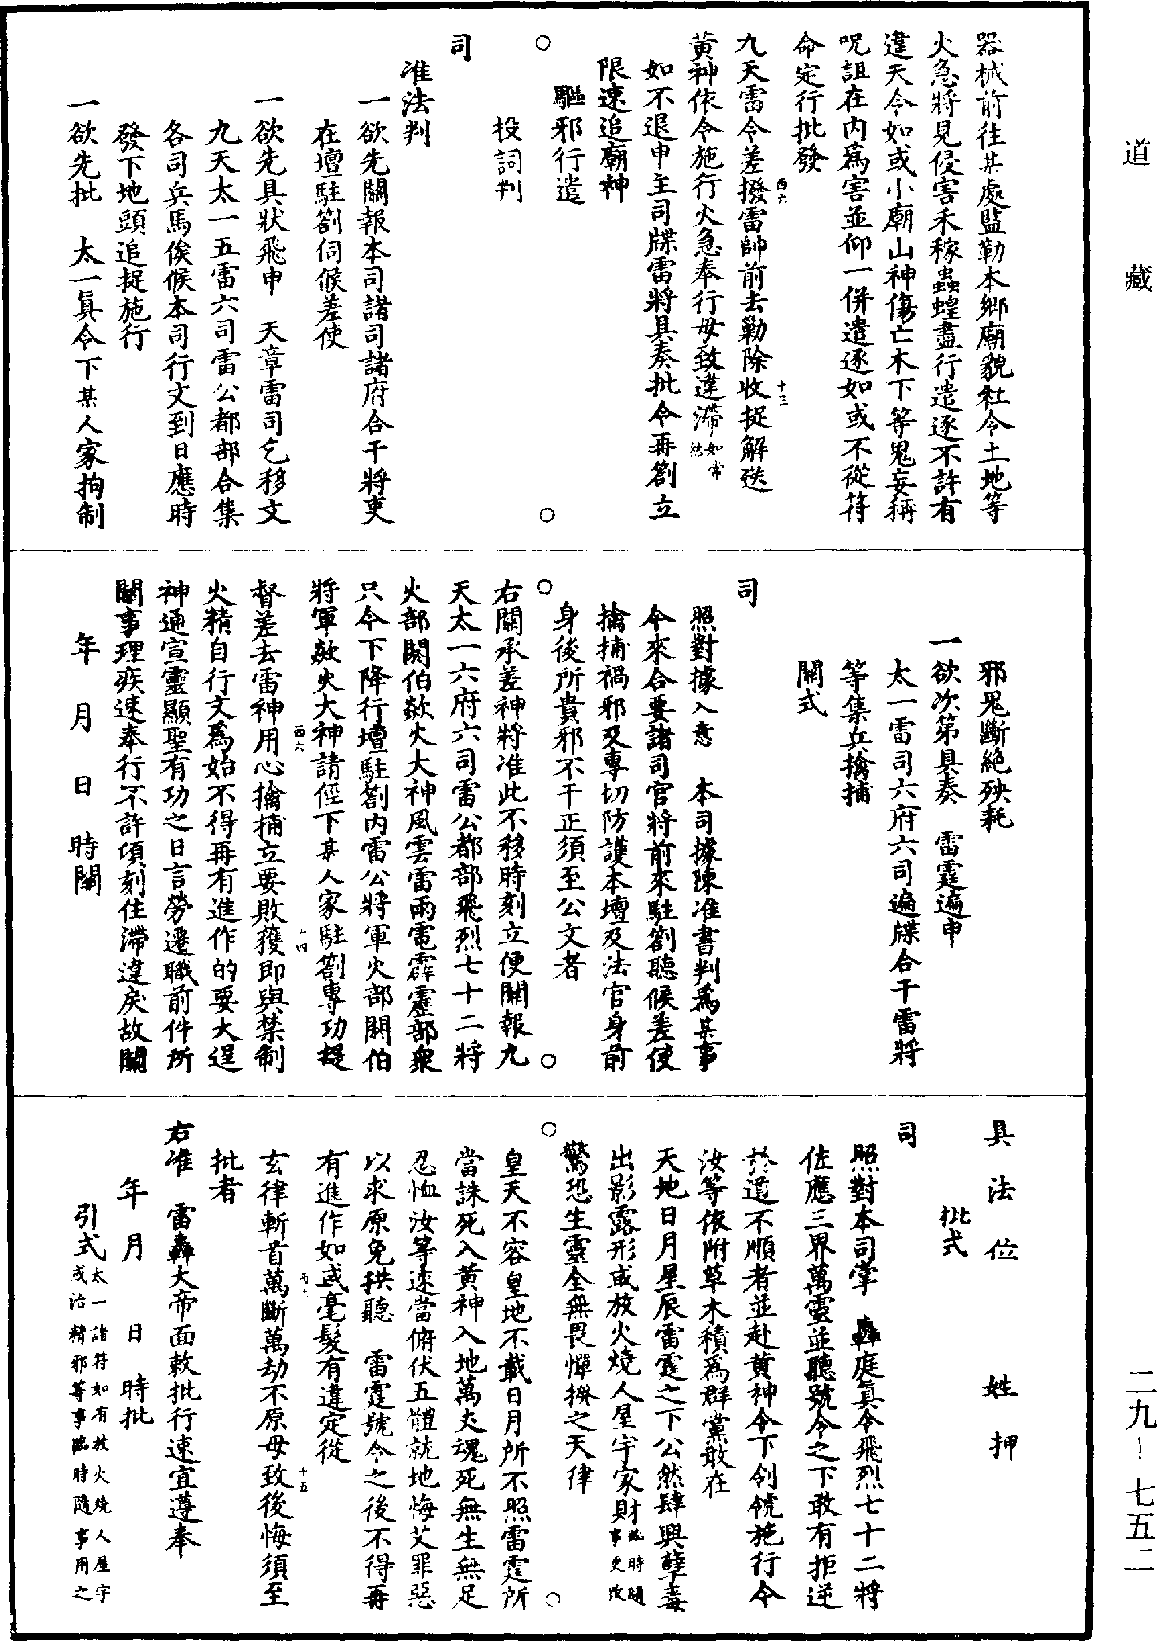 道藏
器械前往某處監勒本鄉廟貌社令土地等
火急將見侵害禾稼蟲蝗盡行遣逐不許有
違天令如或小廟山神傷亡木下等鬼妄稱
呪詛在內爲害並仰一併遣逐如或不從符
命定行批發
九天雷令差撥雷帥前去勦除收捉解送
黃神依令施行火急奉行毋致違滯如常法
如不退申主司牒雷將具奏批令再劄立
限速追廟神
驅邪行遣
投詞判
司
准法判
一欲先關報本司諸司諸府合干將吏
在壇駐劄伺候差使
一欲先具狀飛申 天章雷司乞移文
九天太一五雷六司雷公都部合集
各司兵馬俟候本司行文到日應時
發下地頭追捉施行
一欲先批 太一眞令下某人家拘制
邪鬼斷絕殃耗
一欲次第具奏 雷霆遍申
太一雷司六府六司遍牒合干雷將
等集兵擒捕
關式
司
照對據入意 本司據陳准書判爲某事
今來合要諸司官將前來駐劄聽候差使
擒捕禍邪及專切防護本壇及法官身前
身後所貴邪不干正須至公文者
右關承差神將准此不移時刻立便關報九
天太一六府六司雷公都部飛烈七十二將
火部閼伯歘火大神風雲雷雨電霹靂部衆
只今下降行壇駐劄內雷公將軍火部閼伯
將軍歘火大神請徑下某人家駐劄專功提
督差去雷神用心擒捕立要敗獲即與禁制
火精自行文爲始不得再有進作的要大逞
神通宣靈顯聖有功之日言勞遷職前件所
關事理疾速奉行不許頃刻住滯違戾故關
年 月 日 時關
具法位 姓 押
批式
司
照對本司掌 轟庭眞令飛烈七十二將
佐應三界萬靈並聽號令之下敢有拒逆
於道不順者並赴黃神令下刽號施行今
汝等依附草木積爲群黨敢在
天地日月星辰雷霆之下公然肆興孽毒
出影露形或放火燒人屋宇家財臨時隨事更改
驚恐生靈全無畏憚揆之天律
皇天不容皇地不載日月所不照雷霆所
當誅死入黃神入地萬丈魂死無生無足
忍恤汝等速當俯伏五體就地悔艾罪惡
以求原免拱聽 雷霆號令之後不得再
有進作如或毫髮有違定從
玄律斬首萬斷萬劫不原毋致後悔須至
批者
右准 雷轟大帝面敕批行速宜遵奉
年 月 日 時批
引式太一諸符如有放火燒人屋宇或治精邪等事臨時隨事用之
二九—七五二